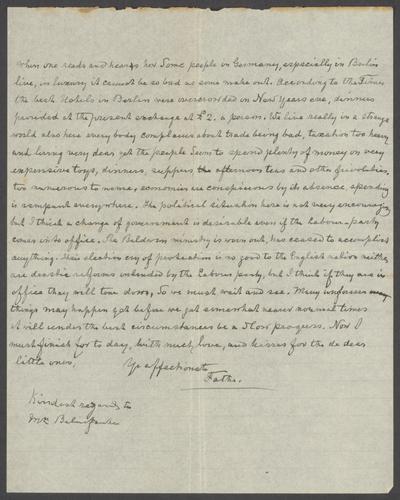 When one reads and hears how some people in Germany, especially in Berlin
live, in luxury it cannot be so bad as some make out. According to the Times
the best Hotels in Berlin were overcrowded on New Years eve, dinners
provided at the present exchange at £2. a person. We live really in a strange
world also here every body complains about trade being bad, taxation too heavy
and living very dear yet the people seem to spend plenty of money on very
expensive toys, dinners, suppers the afternoon teas and other frivolities,
too numerous to name, economies are conspicuous by its absence, spending
is rampant everywhere. The political situation here is not very encouraging
but I think a change of government is desirable even if the Labour-party
comes into office. The Baldwin ministry is worn out, has ceased to accomplish
anything. Their election cry of protection is no good to the English nation neither
are drastic reforms intended by the Labour party, but I think if they are in
office they will tone down, so we must wait and see. Many unforseen
things may happen yet before we get somewhat nearer normal times
it will under the best circumstances be a slow progress. Now I
must finish for to day, with much love, and kisses for the dear
little ones,
Yr affectionate
Father.
Kindest regards to
Mrs